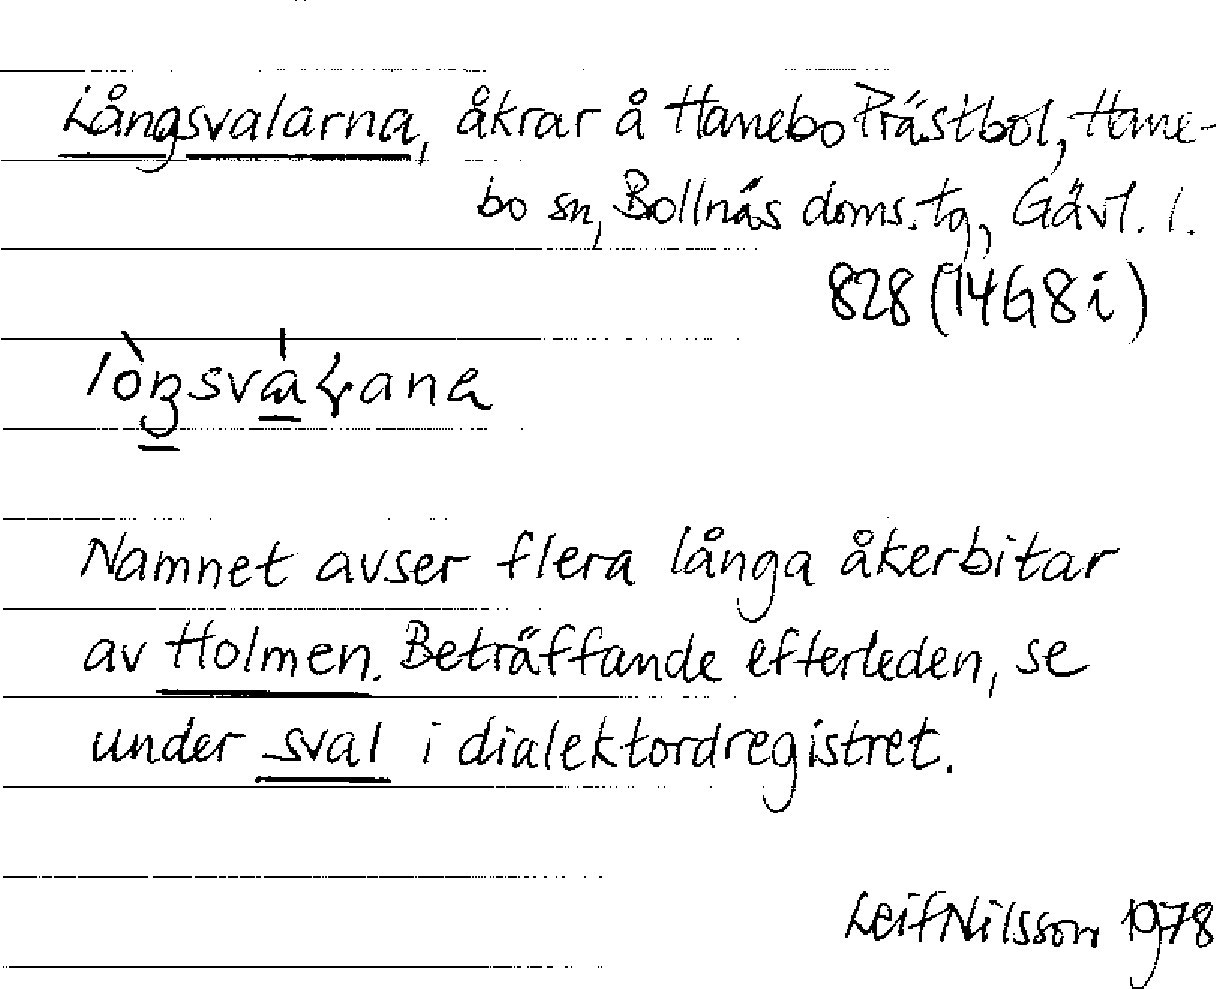 Långsvalarna, åkrar å Hanebo Prästbol, Hane-
bo sn, Bollnäs doms.tg, Gävl. l.
828 (14G8i)
Namnet avser flera långa åkerbitar
av Holmen. Beträffande efterleden, se
under sval i dialektordregistret.
Leif Nilsson 1978